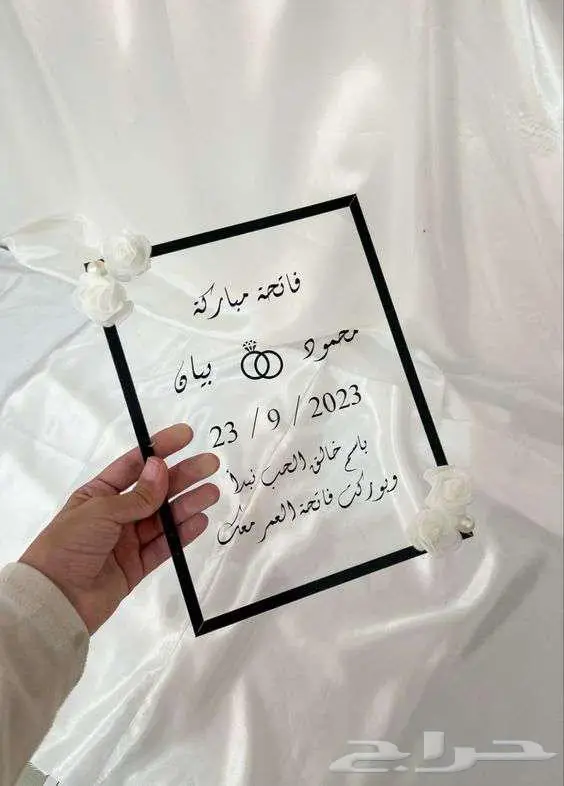 فاتحة مباركة
محمود بيان
23 / 9 / 2023
باسم خالق الحب نبدأ
وبوركت فاتحة العمر معك
حراج